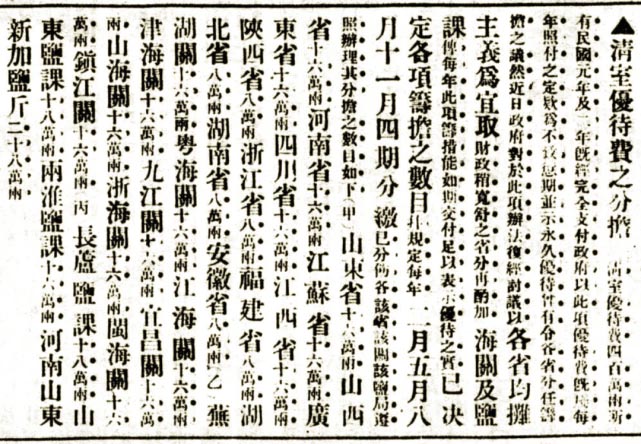 ▲清室優待費之分擔　清室優待費四百萬兩所
有民國元年及二年旣經完全支付政府以此項優待費旣每
年照付之定款爲不致愆期並示永久優待曾有令各省分任籌
擔之議然近日政府對於此項辦法復經討議以各省均攤
主義爲宜取財政稍寬舒之省分再酌加海關及鹽
課俾每年此項籌措能如期交付足以表示優待之實已决
定各項籌擔之數目并規定每年二月五月八
月十一月四期分繳已分飭各該省該關該鹽局遵
照辦理其分擔之數目如下(甲)山東省十六萬兩山西
省十六萬兩河南省十六萬兩江蘇省十六萬兩廣
東省十六萬兩四川省十六萬兩江西省十六萬兩
陝西省八萬兩浙江省八萬兩福建省八萬兩湖
北省八萬兩湖南省八萬兩安徽省八萬兩(乙)蕪
湖關十六萬兩粵海關十六萬兩江海關十六萬兩
津海關十六萬兩九江關十六萬兩宜昌關十六萬
兩山海關十六萬兩浙海關十六萬兩閩海關十六
萬兩鎮江關十六萬兩(丙)長蘆鹽課十八萬兩山
東鹽課十八萬兩兩淮鹽課十六萬兩河南山東
新加鹽斤二十八萬兩